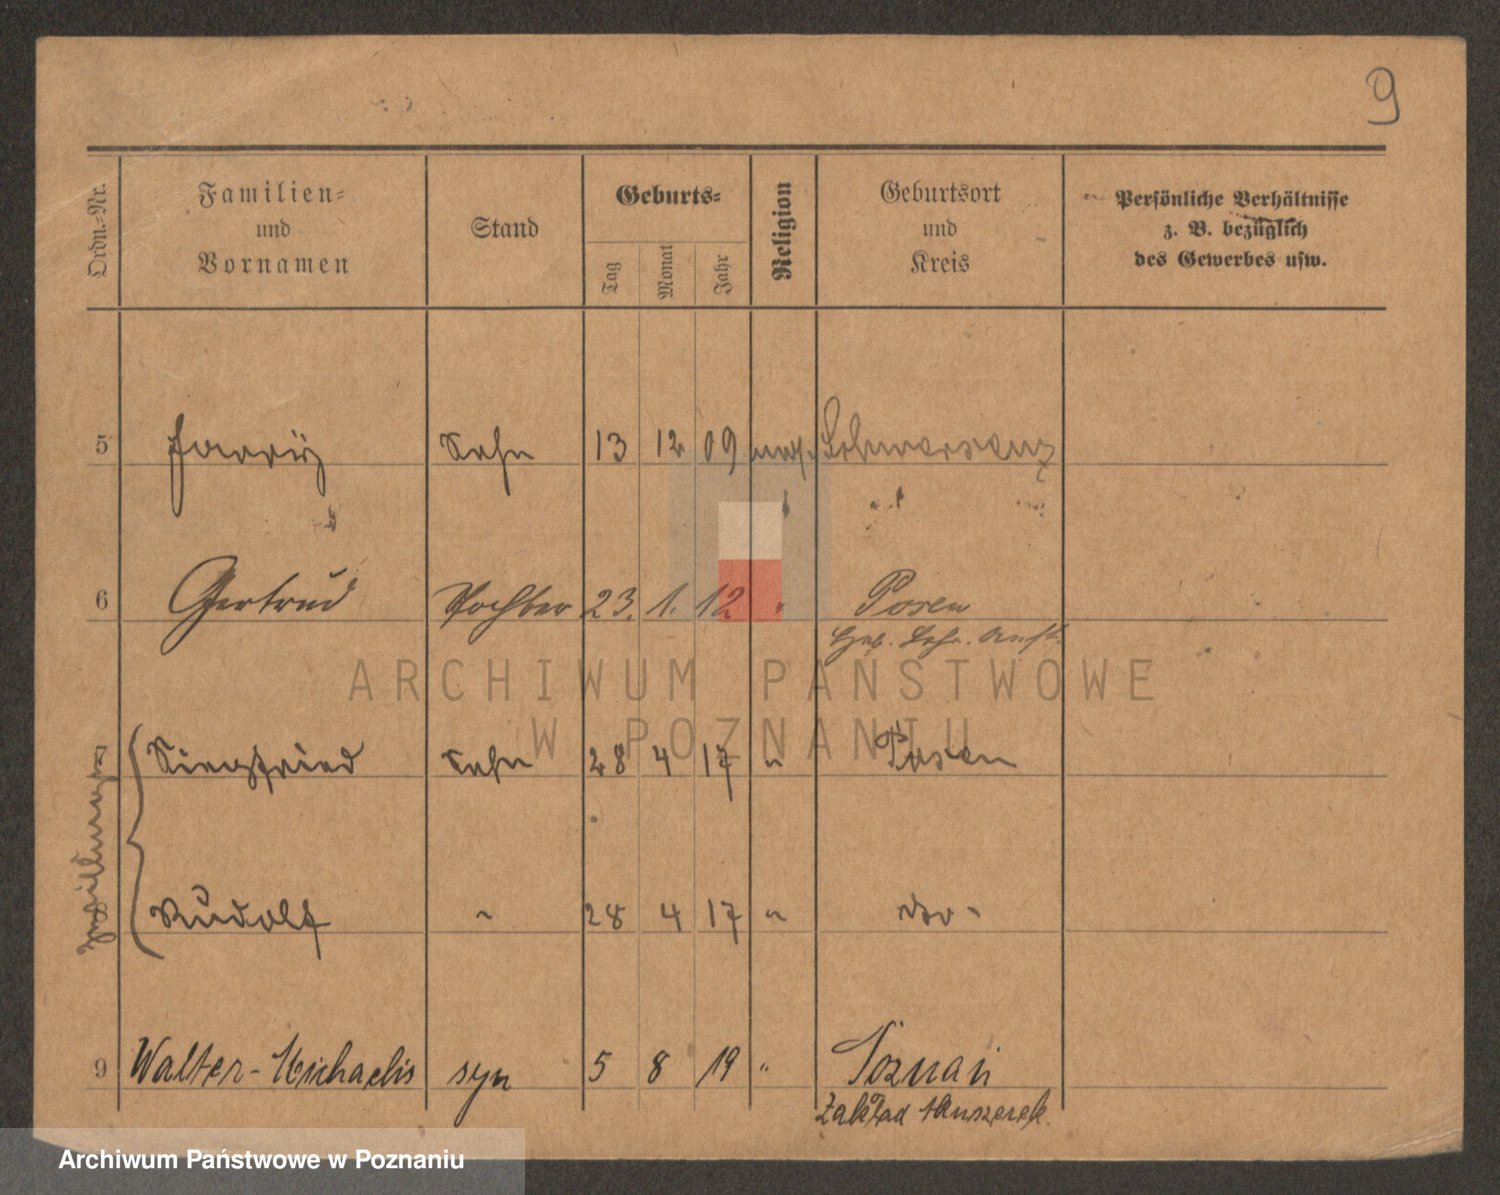 9
Ordn.=Nr.
Familien=
und
Vornamen
Stand
Geburts=
Tag
Monat
Jahr
Religion
Geburtsort
und
Kreis
Persönliche Verhältnisse
z. B. bezüglich
des Gewerbes usw.
5 Sohn 13 12 09 Schwersenz
6 Gertrud Tochter 23. 1. 12 " Posen
Geb. Anst.
Zwillinge
Siegfried Sohn 28 4 17 " Posen
Rudolf " 28 4 17 " do -
9 Walter-Michaelis syn 5 8 19 " Poznań
Zakład
ARCHIWUM PAŃSTWOWE
W POZNANIU
Archiwum Państwowe w Poznaniu